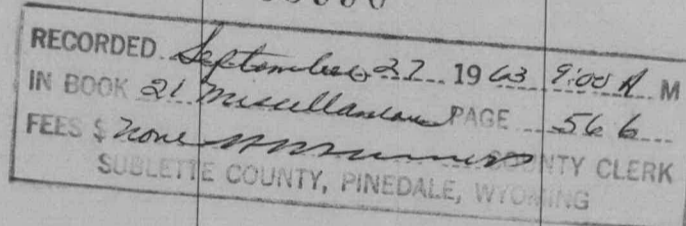 RECORDED September 27 1963 9:00 A M
IN BOOK 21 Miscellaneous PAGE 566
FEES $ none COUNTY CLERK
SUBLETTE COUNTY, PINEDALE, WYOMING